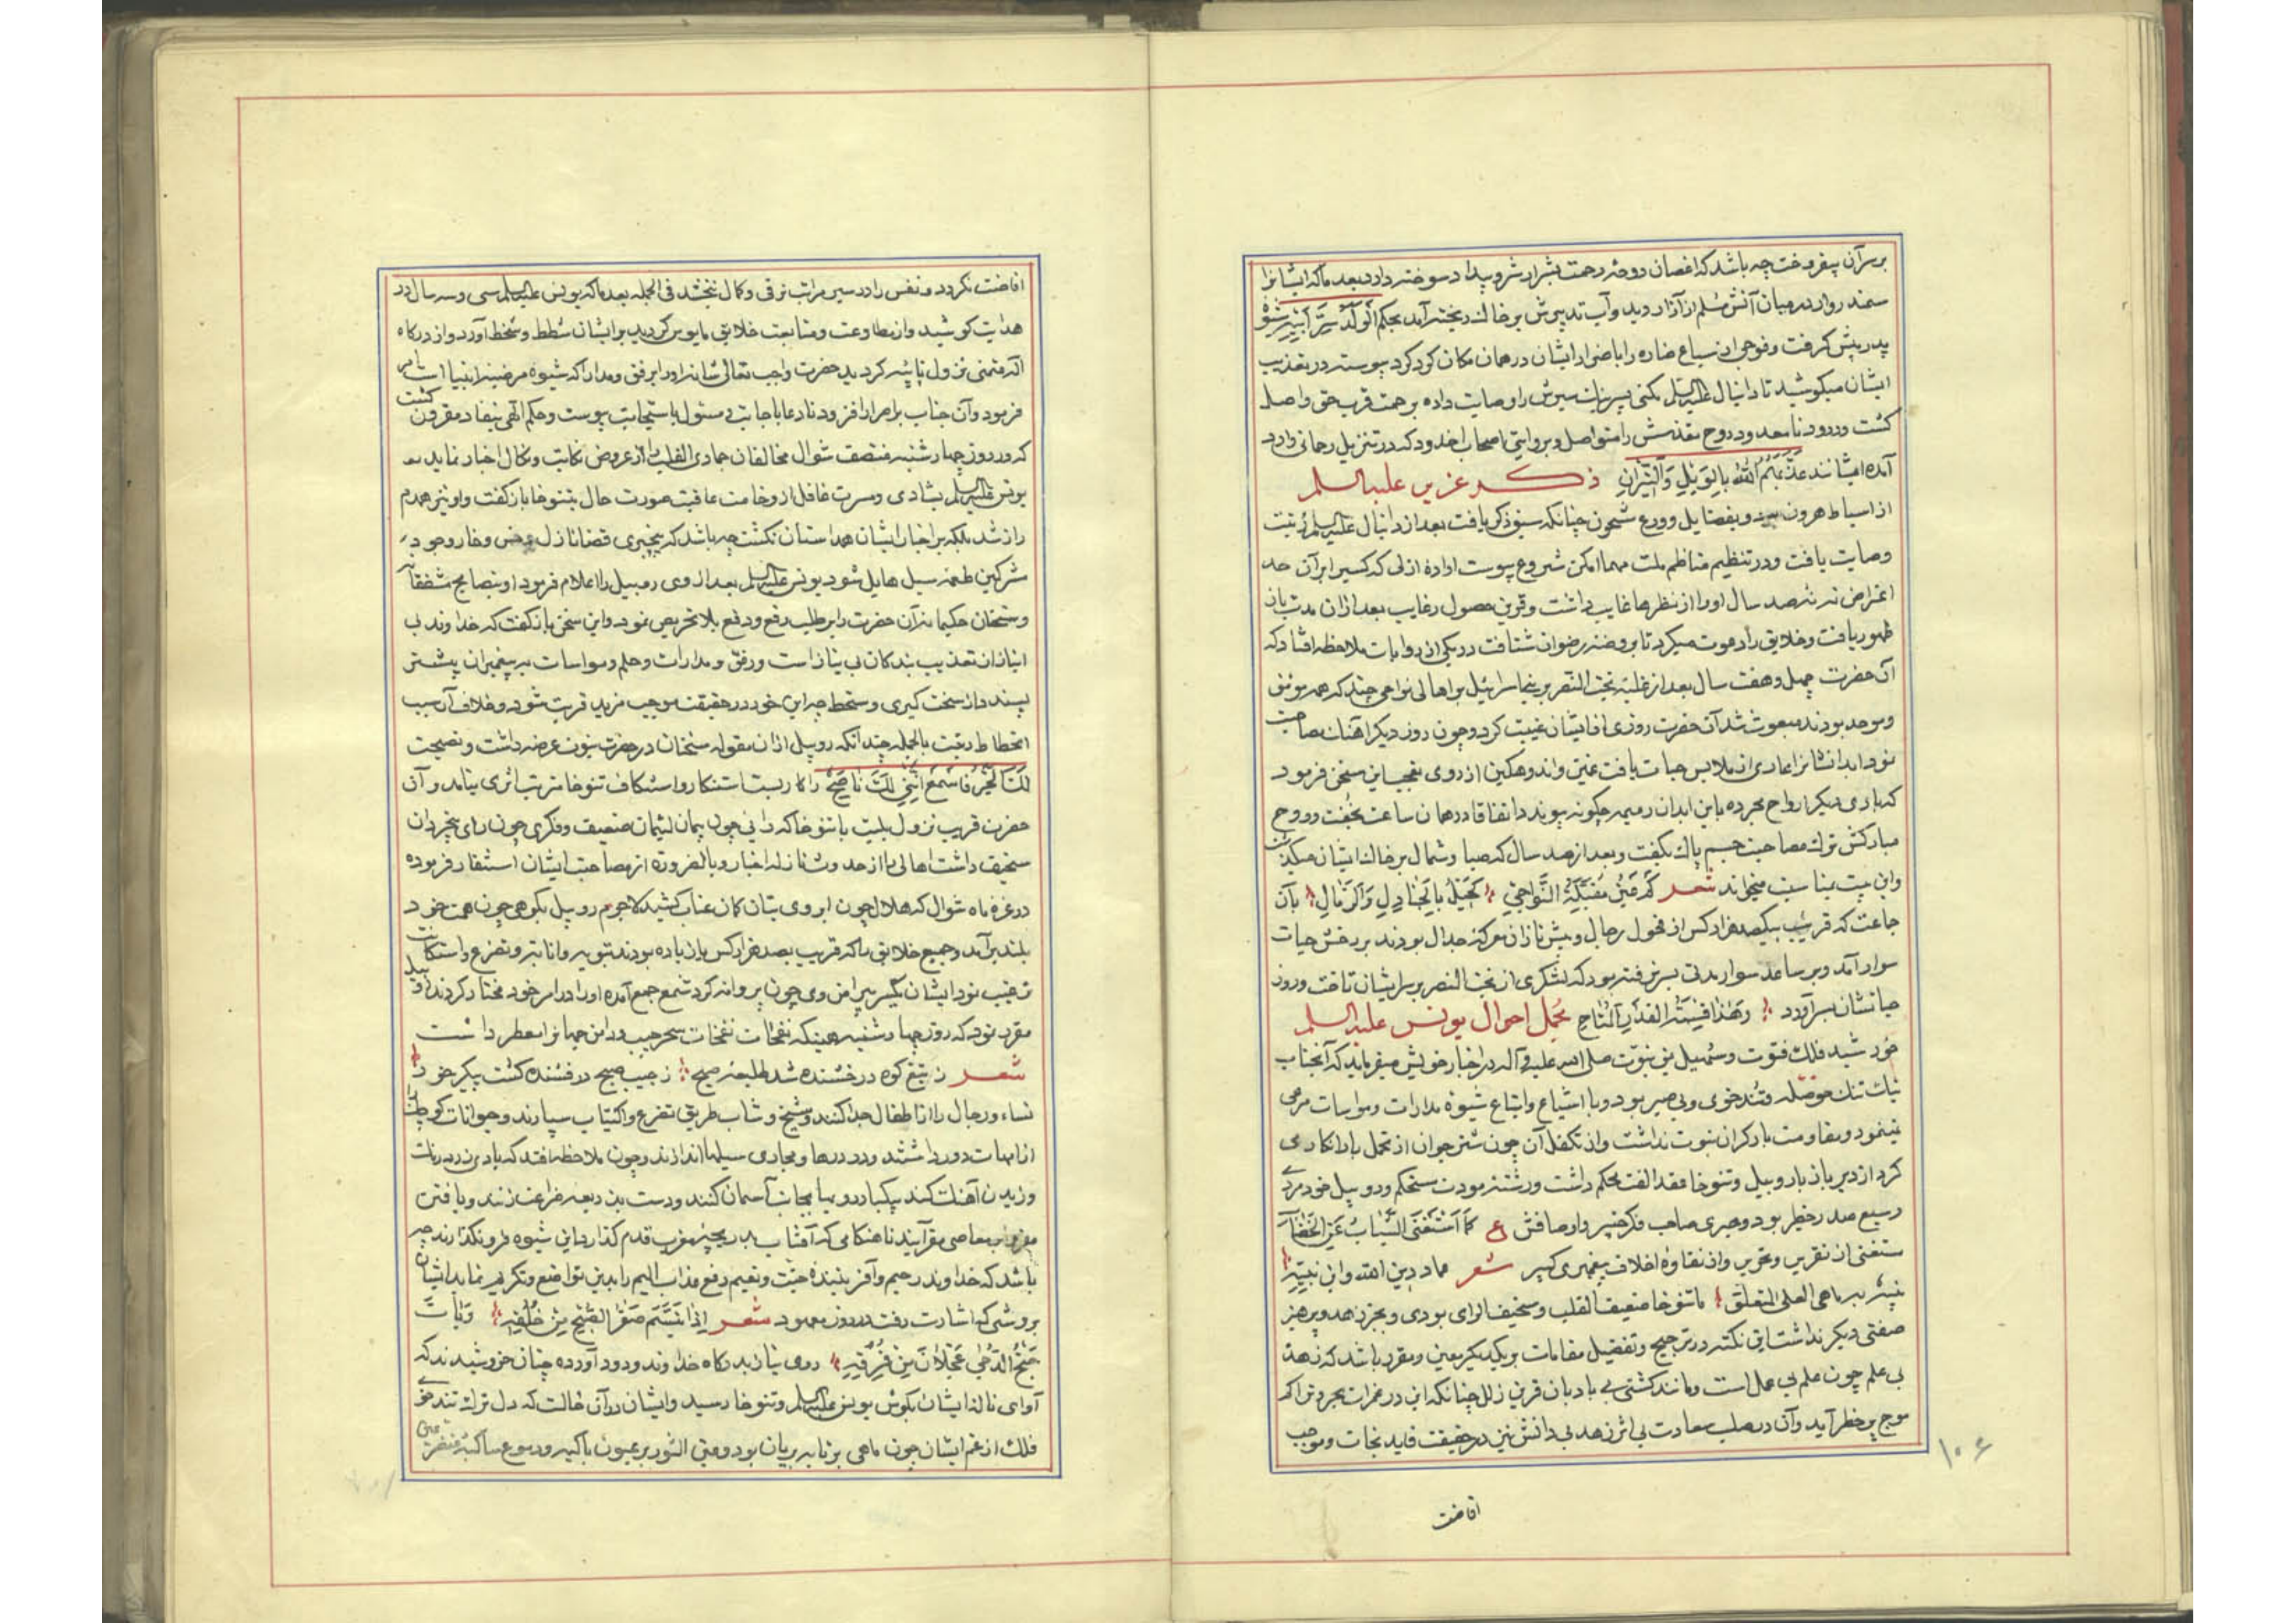 برسرآن بیفروخت چه باشد که اغصان دوحه رحمت بشرار شر و بیداد سوخته دارد بعد ماکه ایشانرا
سمندروار در میان آتش مسلم از آزار دید و آب تدبیرش بر خاک ریخته آمد بحکم الولد سر ابیه شیوه
پدر پیش گرفت و فوجی از سباع ضاره را باضرار ایشان در همان مکان گرد کرد پیوسته در تعذیب
ایشان میکوشید تا دانیال علیه السلم یکنی پسر نیک سیرش را وصایت داده برحمت قرب حق واصل
گشت و درود نامعدود روح مقدسش را متواصل و بروایتی اصحاب اخدود که در تنزیل رحمانی وارد
آمده ایشانند عذبهم الله بالویل والنیران ذکر عزیر علیه السلم
از اسباط هرون بود و بفضایل و ورع مشحون چنانکه سبق ذکر یافت بعد از دانیال علیه السلم رتبت
وصایت یافت و در تنظیم مناظم ملت مهما امکن شروع پیوست اراده ازلی که کسیرا بر آن حد
اعتراض نه صد سال اورا از نظرها غایب داشت و قرین حصول رغایب بعد از آن مدت باز
ظهور یافت و خلایق را دعوت میکرد تا بروضه رضوان شتافت در یکی از روایات ملاحظه افتاد که
آن حضرت چهل و هفت سال بعد از غلبه بخت النصر بر بنی اسرائیل بر اهالی نواحی چند که همه مؤمن
و موحد بودند مبعوث شد آن حضرت روزی از ایشان غیبت کرد و چون روز دیگر آهنگ مصاحبت
نمود ابدانشانرا عاری از ملابس حیات یافت غمین و اندوهگین از روی تعجب این سخن فرمود
که باری دیگر ارواح مجرده باین ابدان رمیمه چگونه پیوندد اتفاقا در همان ساعت بخفت و روح
مبارکش ترک مصاحبت جسم پاک بگفت و بعد از صد سال که صبا و شمال بر خاک ایشان میگذشت
و این بیت بمناسبت میخواند شعر کم عین مقبلة النواحی کحیل بالجنادل والرمال بآن
جماعت که قریب بیکصد هزار کس از فحول رجال و پیش تازان معرکه جدال بودند بر رخش حیات
سوار آمد و بر ساعد سوار مدتی بسر نرفته بود که لشکری از بخت النصر بر سر ایشان تاخت و روز
حیاتشان بسر آورد وهذا قیسة القدر المتاح مجمل احوال یونس علیه السلم
خورشید فلک فتوت و سهیل یمن نبوت صلی الله علیه و آله در اخبار خویش میفرماید که آنجناب
نیک تنک حوصله و تند خوی و بی صبر بود و با اشیاع و اتباع شیوه مدارات و مواسات مرعی
نمینمود و مقاومت بار گران نبوت نداشت و از تکفل آن چون شتر جوان از تحمل بار انکار می
کرد از دیر باز با روبیل و تنوخا عقد الفت محکم داشت و رشته مودت مستحکم و روبیل خود مردی
رسیع صدر خطیر بود و حبری صاحب فکر خبیر وارصافش ع کما استغنی الشباب عن الخضاب
مستغنی از تقریر و تحریر و از نقاوه اخلاف پیغمبری کبیر شعر عماد دین الله وابن نبیه
نبیه ماهی العلی المتعلق اما تنوخا ضعیف القلب و سخیف الرای بودی و بجز زهد و پرهیز
صفتی دیگر نداشت این نکته در ترجیح و تفضیل مقامات بر یکدیگر معین و مقرر باشد که زهد
بی علم چون علم بی عمل است و مانند کشتی بی بادبان قرین زلل چنانکه این در غمرات بحر و تراکم
موج پر خطر آید و آن در صلب سعادت بی اثر زهد بی دانش نیز در حقیقت قاید نجات و موجب
۱۰۶
افاضت
افاضت نگردد و نفس را در سیر مراتب ترقی و کمال نبخشد فی الجمله بعد ماکه یونس علیه السلم سی و سه سال در
هدایت کوشید و از مطاوعت و متابعت خلایق مایوس گردید بر ایشان شطط و سخط آورد و از درگاه
اله متمنی نزول نائبه گردید حضرت واجب تعالی شانه اورا برفق و مدارا که شیوه مرضیه انبیا است امر
فرمود و آن جناب بر اصرار افزود تا دعا باجابت و مسئول باستجابت پیوست و حکم الهی بنفاد مقرون گشت
که در روز چهارشنبه منتصف شوال مخالفان جمادی القلب را از عروض نکایت و نکال اخبار نماید
یونس علیه السلم بشادی و مسرت غافل از وخامت عاقبت صورت حال بتنوخا باز گفت و او نیز همدم
راز شد بلکه بر اخبار ایشان همداستان گشت چه باشد که بیخبری قضا نازل عرض و خار وجود
مشرکین طعمه سیل هایل شود یونس علیه السلم بعد از وی روبیل را اعلام فرمود او بنصایح مشفقانه
و سخنان حکیمانه آن حضرت را بر طلب رفع و دفع بلا تحریض نمود و این سخن باز گفت که خداوند بی
انباز از تعذیب بندگان بی نیاز است و رفق و مدارات و حلم و مواسات به پیغمبران بیشتر
پسندد از سخت گیری و سخط چه این خود در حقیقت موجب مزید قربت شود و خلاف آن سبب
انحطاط رتبت بالجمله چندانکه روبیل از آن مقوله سخنان در حضرت نبوت عرضه داشت و نصیحت
لک الخیر فاسمع اننی لک ناصح را کار بست استنکار و استنکاف تنوخا مرتب اثری نیامد و آن
حضرت قریب نزول بلیت با تنوخا که رائی چون پیمان لئیمان ضعیف و فکری چون رای بیخردان
سخیف داشت اهالی را از حدوث نازله اخبار و بالضروره از مصاحبت ایشان استنفار فرموده
در غره ماه شوال که هلال چون ابروی بتان کمان عتاب کشید لاجرم روبیل بکوهی چون همت خود
بلند بر آمد و جمیع خلایق را که قریب بصد هزار کس یا زیاده بودند بتوبه و انابت و تضرع و استکانت
ترغیب نمود ایشان بگیر پیرامن وی چون پروانه گرد شمع جمع آمده اورا در امر خود مختار کردند روبیل
مقرر نمود که روز چهارشنبه همینکه نفحات نغمات سحر جیب و دامن جهانرا معطر داشت
شعر ز تیغ کوه درخشنده شد طلیعه صبح ز جیب صبح درفشنده گشت پیکر خور
نساء و رجال را از اطفال جدا کنند و شیخ و شاب طریق تضرع و اکتیاب سپارند و حیوانات کوچک را
از امهات دور داشتند و در درها و مجاری سیلها اندازند و چون ملاحظه افتد که بادی زرد رنگ
وزیدن آهنگ کند بیکبار رو بمناجات آسمان کنند و دست بذریعه ضراعت زنند و بافتن
معاصی مقر آیند تا هنگامی که آفتاب بدریچه مغرب قدم گذارد این شیوه فرو نگذارند چه
باشد که خداوند رحیم و آفریننده جنت و نعیم رفع عذاب الیم را بدین تواضع و تکریم نماید ایشان
بروشی که اشارت رفت در روز معهود شعر اذا تبسم صفر الصبح من خلفه وبات
جنح الدجی عجلان من فرقه روی نیاز بدرگاه خداوند ودود آورده چنان خروشیدند که
آوای ناله ایشان بگوش یونس علیه السلم و تنوخا رسید و ایشان در آن حالت که دل ترک تند خوی
فلک از غم ایشان چون ماهی بر تابه بریان بود و متی النور بر عیون باکیه و دموع ساکبه متضرعین